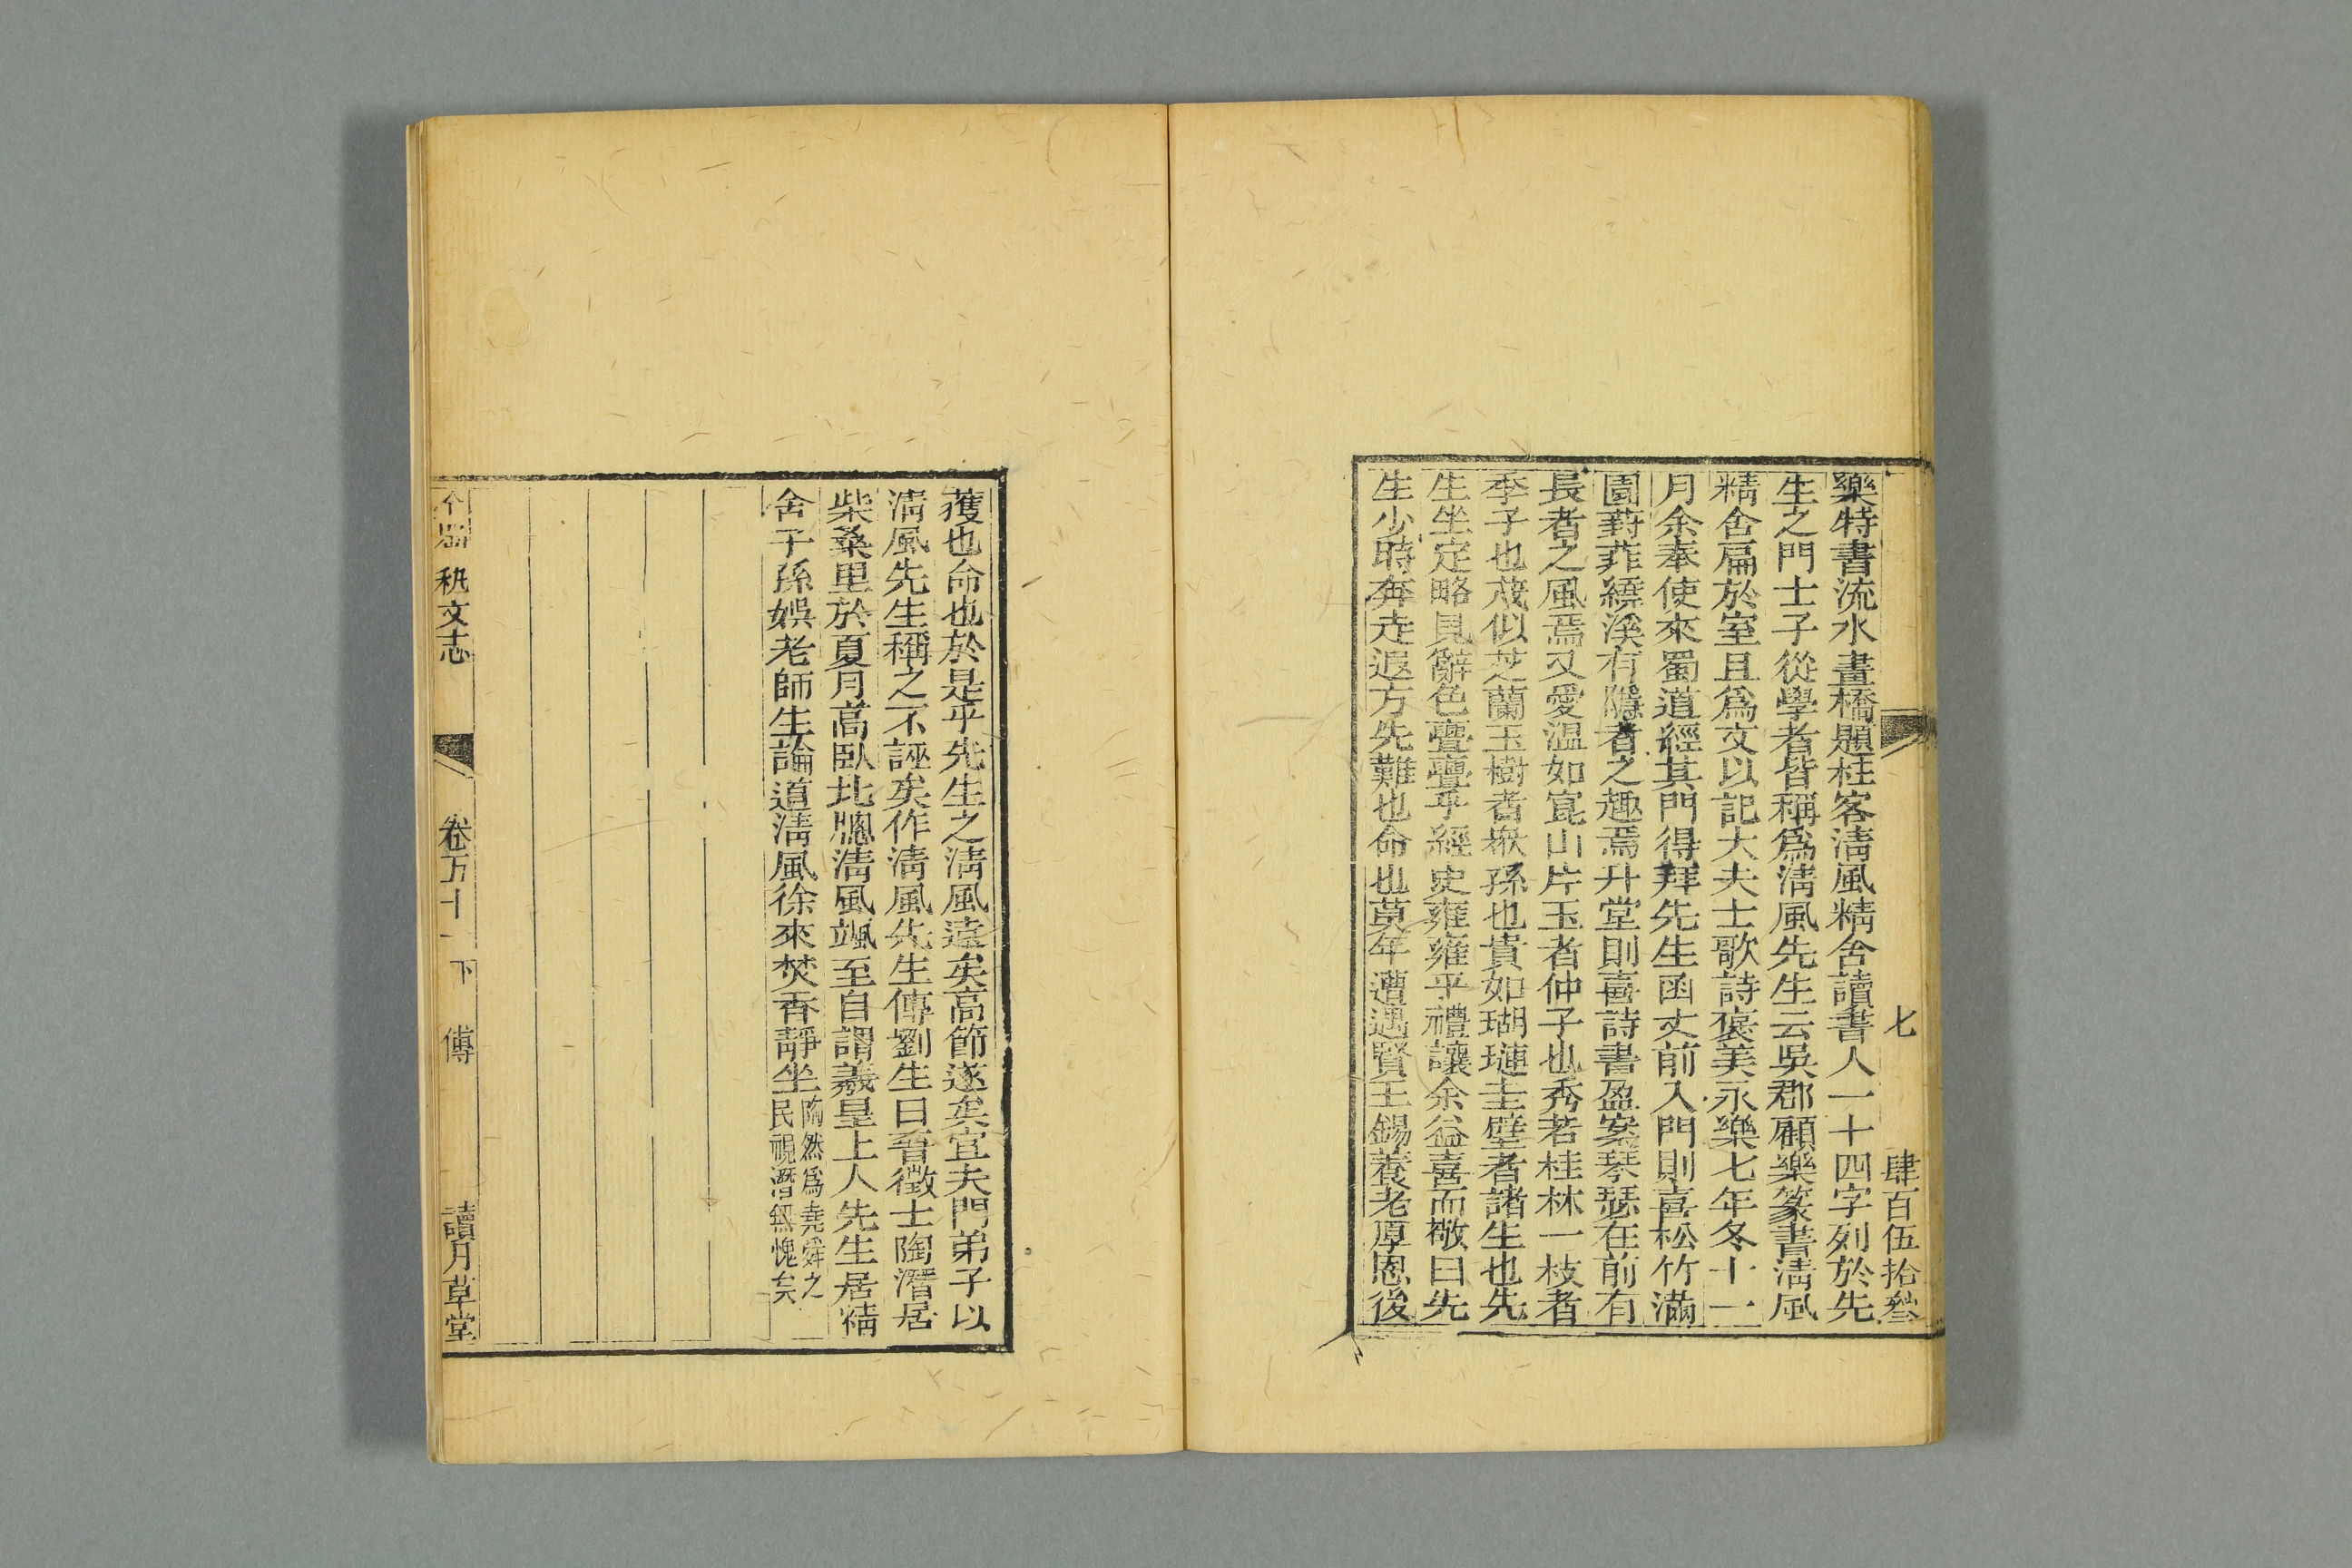 七　肆百伍拾叁
樂特書流水畫橋題柱客淸風精舍讀書人一十四字列於先
生之門士子從學者皆稱爲淸風先生云吳郡顧樂篆書淸風
精舍扁於室且爲文以記大夫士歌詩褒美永樂七年冬十一
月余奉使來蜀道經其門得拜先生函丈前入門則喜松竹滿
園葑菲繞溪有隱者之趣焉升堂則喜詩書盈案琴瑟在前有
長者之風焉又愛溫如崑山片玉者仲子也秀若桂林一枝者
季子也茂似芝蘭玉樹者衆孫也貴如瑚璉圭璧者諸生也先
生坐定略見辭色亹亹乎經史雍雍乎禮讓余益喜而敬曰先
生少時奔走遐方先難也命也莫年遭遇賢王錫養老厚恩後
獲也命也於是乎先生之淸風遠矣高節遂矣宜夫門弟子以
淸風先生稱之不誣矣作淸風先生傳劉生曰晉徵士陶潛居
柴桑里於夏月高臥北牕淸風颯至自謂羲皇上人先生居精
舍子孫娛老師生論道淸風徐來焚香靜坐陶然爲堯舜之
民視潛無愧矣
全蜀秇文志　卷五十一下　傳　讀月草堂